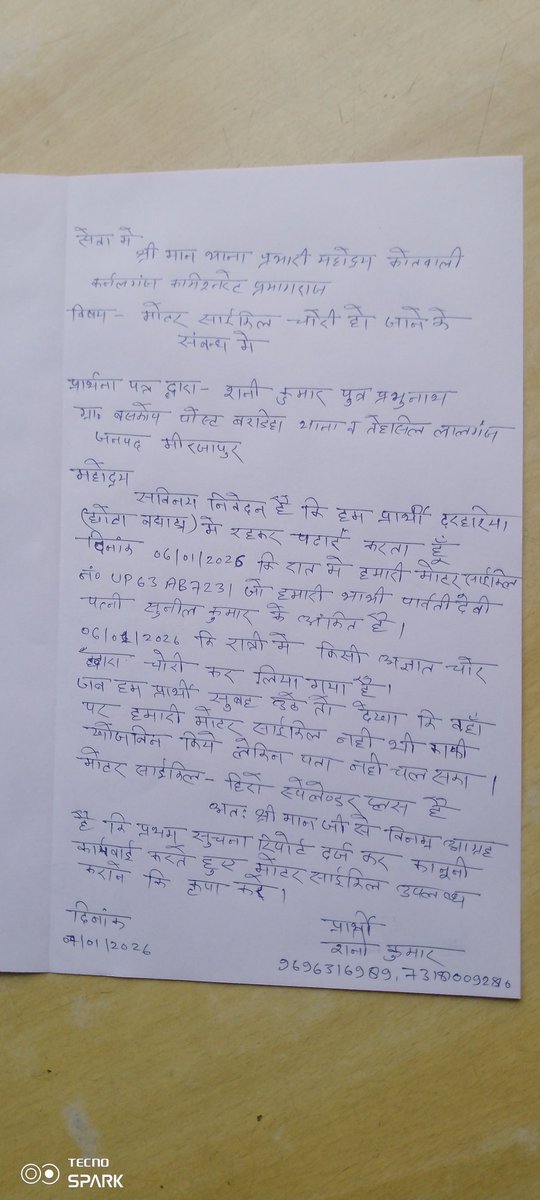 सेवा मे
श्री मान थाना प्रभारी महोदय कोतवाली
कर्नलगंज कमिश्नरेट प्रयागराज
विषय- मोटर साईकिल चोरी हो जाने के
संबन्ध मे
प्रार्थना पत्र द्वारा- शनी कुमार पुत्र प्रभुनाथ
ग्राम पोस्ट बरडिहा थाना व तेहसिल लालगंज
जनपद मीरजापुर
महोदय
सविनय निवेदन है कि हम प्रार्थी
(छोटा बघाड़ा) मे रहकर पढाई करता हूँ
दिनांक 06/01/2026 कि रात मे हमारी मोटर साईकिल
नं० UP63 AB7231 जो हमारी भाभी पार्वती देवी
पत्नी सुनील कुमार के अंकित है।
06/01/2026 कि रात्री मे किसी अज्ञात चोर
द्वारा चोरी कर लिया गया है।
जब हम प्रार्थी सुबह उठे तो देखा कि वहाँ
पर हमारी मोटर साईकिल नही थी काफी
खोजबिन किये लेकिन पता नही चल सका।
मोटर साईकिल- हिरो स्पेलेण्डर प्लस है
अतः श्री मान जी से विनम्र आग्रह
है कि प्रथम सुचना रिपोर्ट दर्ज कर कानूनी
कार्यवाई करते हुए मोटर साईकिल उपलब्ध
कराने कि कृपा करे।
दिनांक
07/01/2026
प्रार्थी
शनी कुमार
9696316989,
TECNO
SPARK